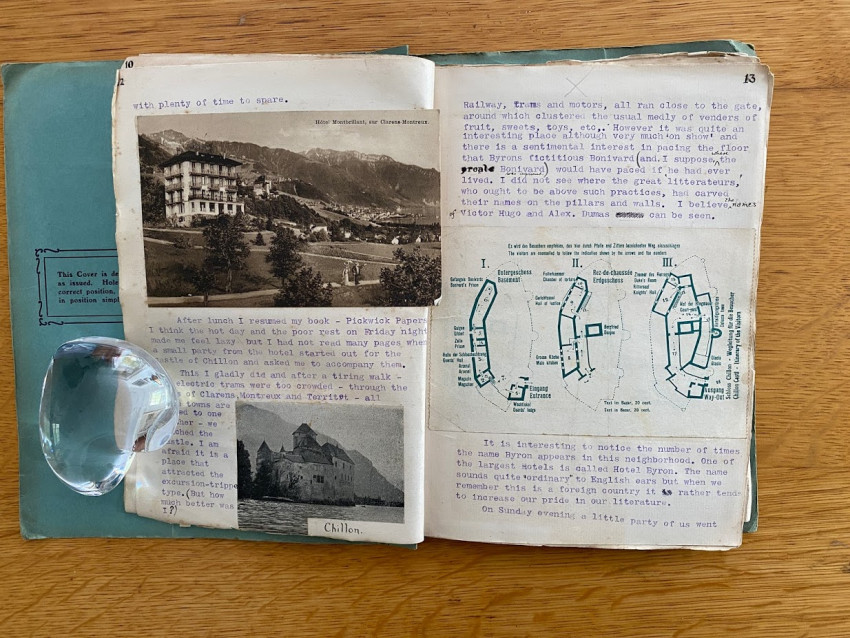 This Cover is de
as issued. Hole
correct position,
in position simpl
10
2
with plenty of time to spare.
Hôtel Montbrillant, sur Clarens-Montreux.
After lunch I resumed my book - Pickwick Papers
I think the hot day and the poor rest on Friday night
made me feel lazy but I had not read many pages when
a small party from the hotel started out for the
Castle of Chillon and asked me to accompany them.
This I gladly did and after a tiring walk -
electric trams were too crowded - through the
of Clarens, Montreux and Territet - all
towns are
ed to one
her - we
ched the
stle. I am
afraid it is a
place that
attracted the
excursion-trippe
type. (But how
much better was
I?)
Chillon.
13
Railway, trams and motors, all ran close to the gate,
around which clustered the usual medly of venders of
fruit, sweets, toys, etc,. However it was quite an
interesting place although very much 'on show' and
there is a sentimental interest in pacing the floor
that Byrons fictitious Bonivard (and I suppose, the
Bonivard) would have paced if he had ever
lived. I did not see where the great litterateurs,
who ought to be above such practices, had carved
their names on the pillars and walls. I believe, the names
of Victor Hugo and Alex. Dumas can be seen.
Es wird den Besuchern empfohlen, den ihnen durch Pfeile und Ziffern bezeichneten Weg einzuschlagen
The visitors are recommended to follow the indication shown by the arrows and the numbers
I.
Untergeschoss
Basement
II.
Rez-de-chaussée
Erdgeschoss
III.
Eingang
Entrance
Ausgang
Way-Out
Schloss Chillon - Wegleitung für die Besucher
Chillon Castle - Itinerary of the Visitors
It is interesting to notice the number of times
the name Byron appears in this neighborhood. One of
the largest hotels is called Hotel Byron. The name
sounds quite "ordinary" to English ears but when we
remember this is a foreign country it is rather tends
to increase our pride in our literature.
On Sunday evening a little party of us went